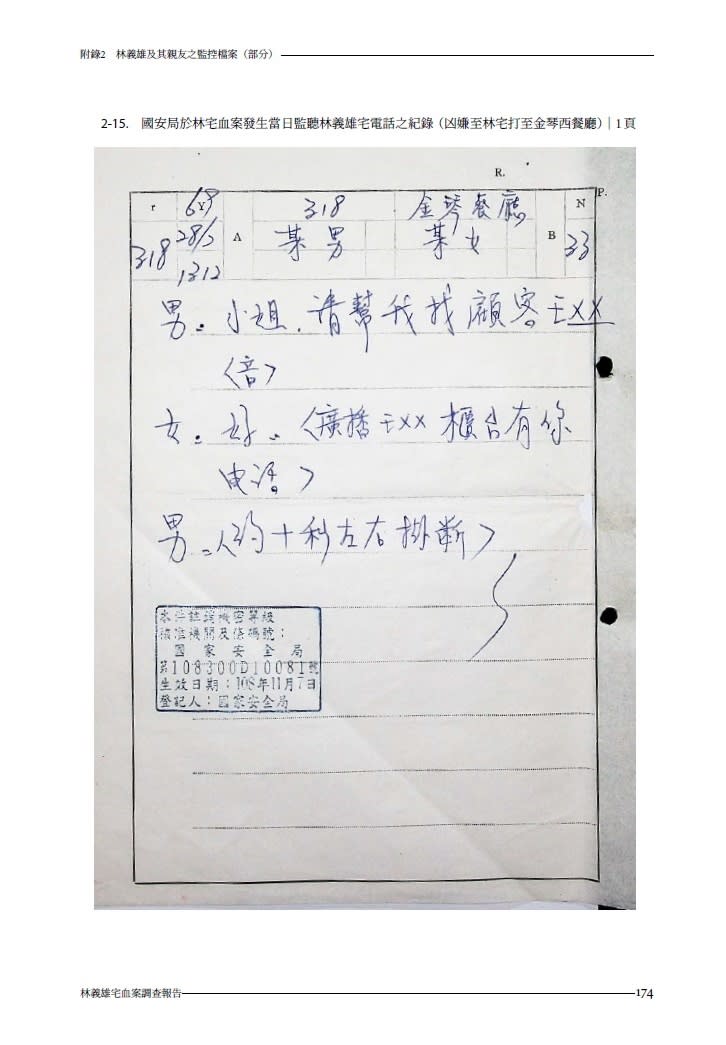 附錄2 林義雄及其親友之監控檔案（部分）
2-15. 國安局於林宅血案發生當日監聽林義雄宅電話之紀錄（凶嫌至林宅打至金琴西餐廳）｜1頁
R.
P.
r 69 Y 318 金琴餐廳 N
318 28/3 A 某男 某女 B 33
1312
男：小姐，請幫我找顧客王XX
〈音〉
女：好。〈廣播王XX櫃台有你
电话。〉
男：〈約十秒左右掛斷〉
本件註銷機密等級
核准機關及條碼號：
國家安全局
第108300D10081號
生效日期：108年11月7日
登記人：國家安全局
林義雄宅血案調查報告 174